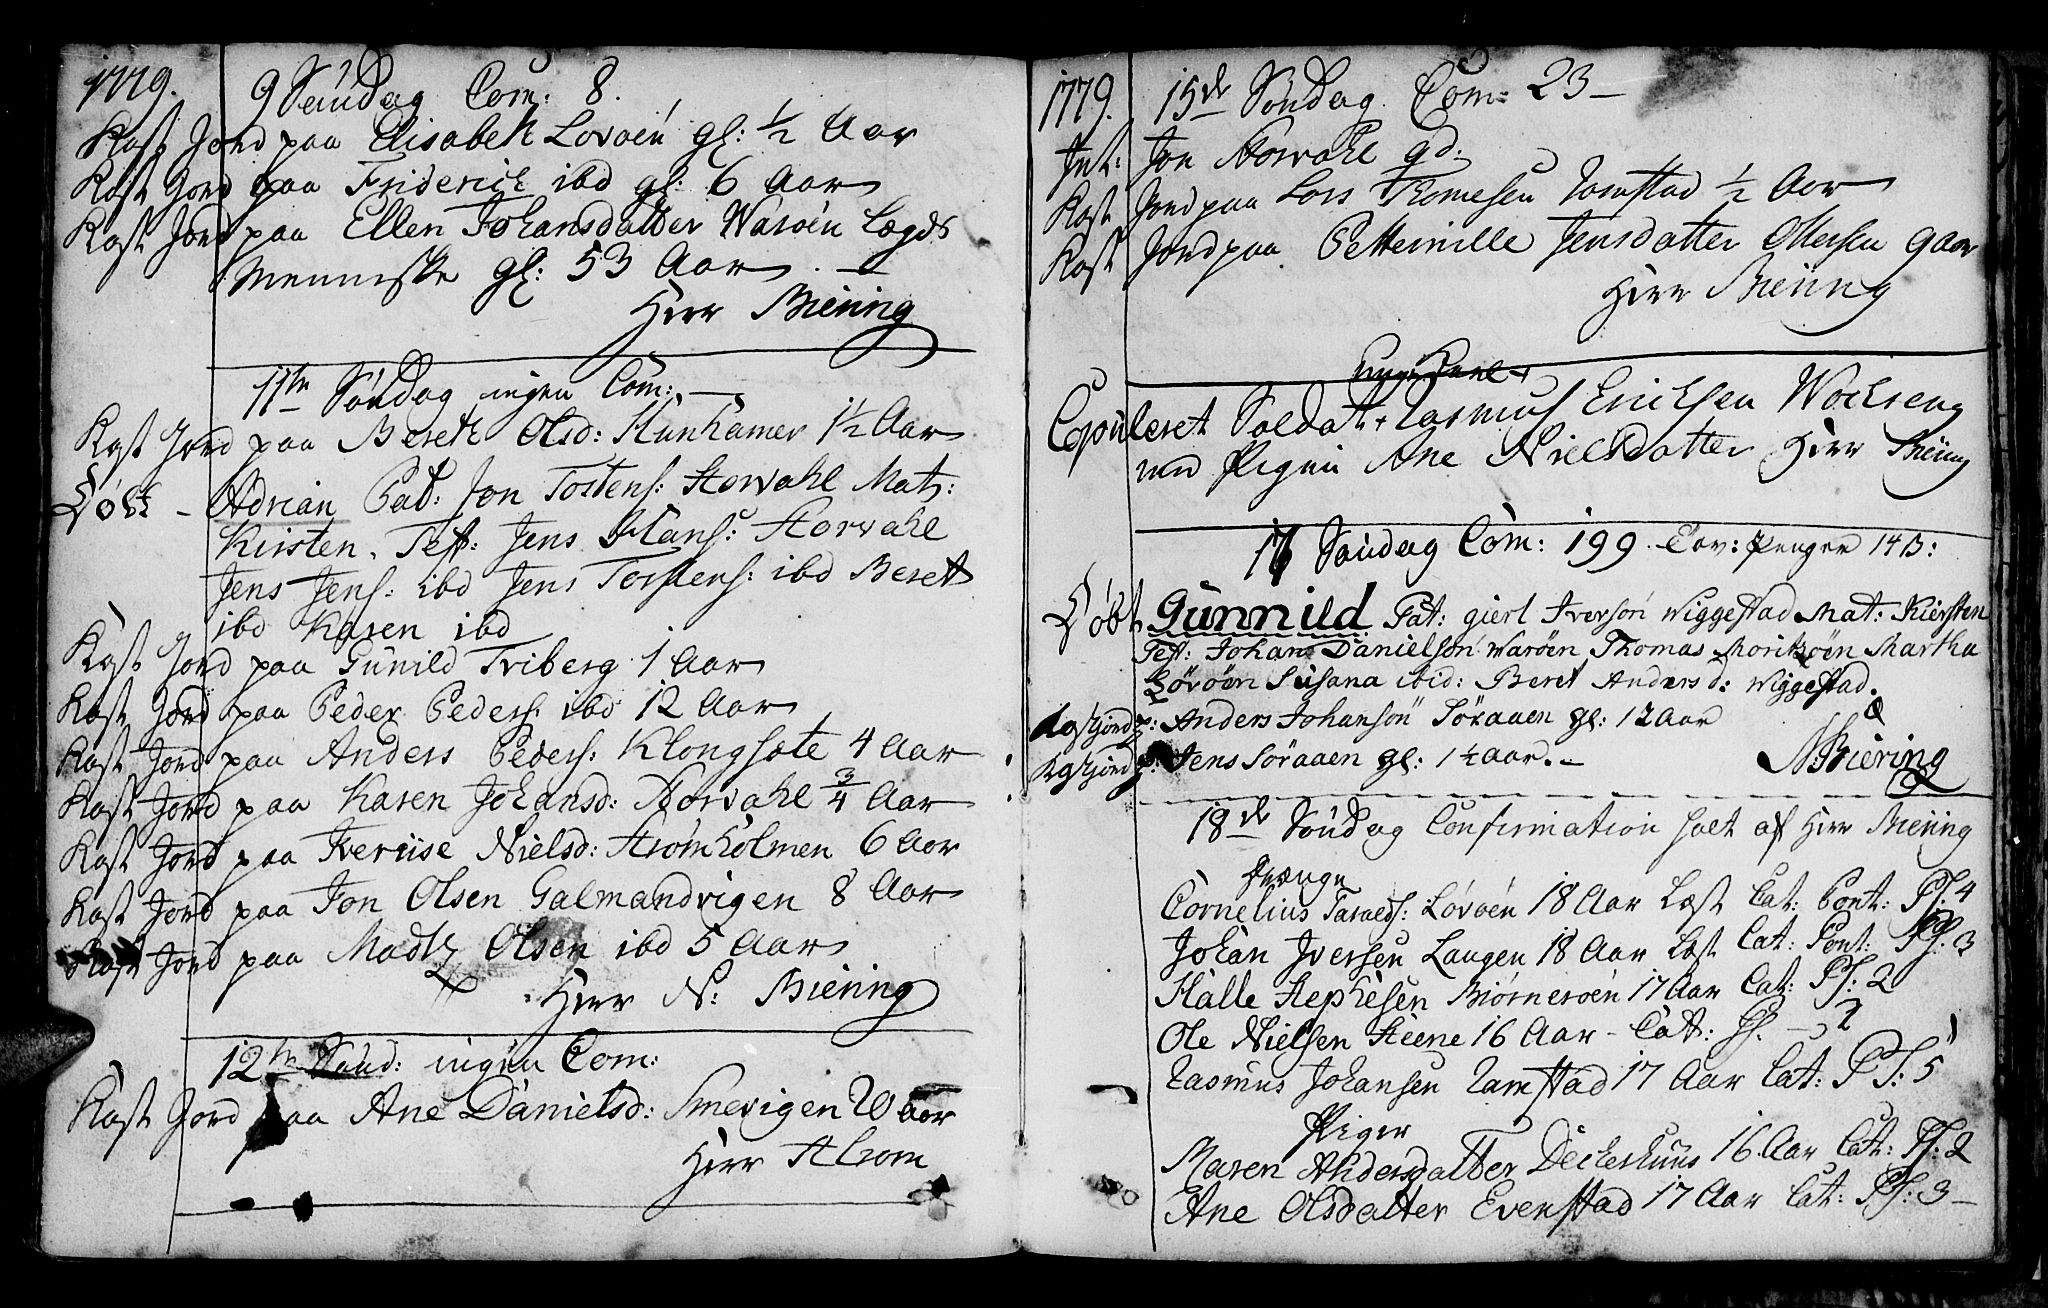 1779. 9 Søndag Com: 8.
Kast Jord paa Elisabeth Lovøen gl: ½ Aar
Kast Jord paa Friderich ibd gl: 6 Aar
Kast Jord paa Ellen Johansdatter Warøen Lægds
Menniske gl: 53 Aar. —
Herr Biering
11te Søndag ingen Com: —
Kast Jord paa Bereth Olsd: Kunhamer 1½ Aar
Døbt - Adrian Pat: Jon Tostens: Storvahl Mat:
Kirsten. Test: Jens Hans: Storvahl
Jens Jens: ibd Jens Torstens: ibd Beret
ibd Karen ibd
Kast Jord paa Gunild Triberg 1 Aar
Kast Jord paa Peder Peders: ibd 12 Aar
Kast Jord paa Anders Peders: Klongsote 4 Aar
Kast Jord paa Karen Johansd: Storvahl ¾ Aar
Kast Jord paa Iveriise Nielsd: Strømholmen 6 Aar
Kast Jord paa Jon Olsen Galmandvigen 8 Aar
Kast Jord paa Madtz Olsen ibd 5 Aar
Herr N: Biering
12te Sønd: ingen Com:
Kast Jord paa Ane Danielsd: Smevigen 20 Aar
Herr Strom
1779. 15de Søndag Com: 23 —
Int: Jon Storvahl gd.
Kast Jord paa Lars Thomesen Ramstad ½ Aar
Kast Jord paa Petternille Jensdatter Ottersen 9 Aar
Herr Biering
Copuleret Soldat + Rasmus Ericksen Wockseng
med Pigen Ane Nielsdatter Herr Biering
17 Søndag Com: 199. Tav: Penger 14 B:
Døbt Gunnild Pat: Gierl Iverson Wiggestad Mat: Kiersten
Test: Johan Danielson Warøen Thomas Moritzøen Martha
Sørøen Susana ibid: Beret Anders d: Wiggestad.
Kastjord p: Anders Johanson Søraaen gl: 12 Aar
Kastjord p: Jens Søraaen gl: 1½ Aar. —
N: Biering
18de Søndag Confirmation holt af Herr Biering
Drænge
Cornelius Taraldss: Lovøen 18 Aar Læst Cat: Pont: Ps: 4
Johan Iversen Laugen 18 Aar Læst Cat: Pont: Ps: 3
Halle Stephesen Biørnerøen 17 Aar Cat: Ps: 2
Ole Nielsen Steene 16 Aar - Cat: Ps. — 2
Rasmus Johansen Ramstad 17 Aar Cat: Ps: 5
Piger
Maren Andersdatter Deckerhuus 16 Aar Cat: Ps: 2
Ane Olsdatter Evenstad 17 Aar Cat: Ps: 3 —